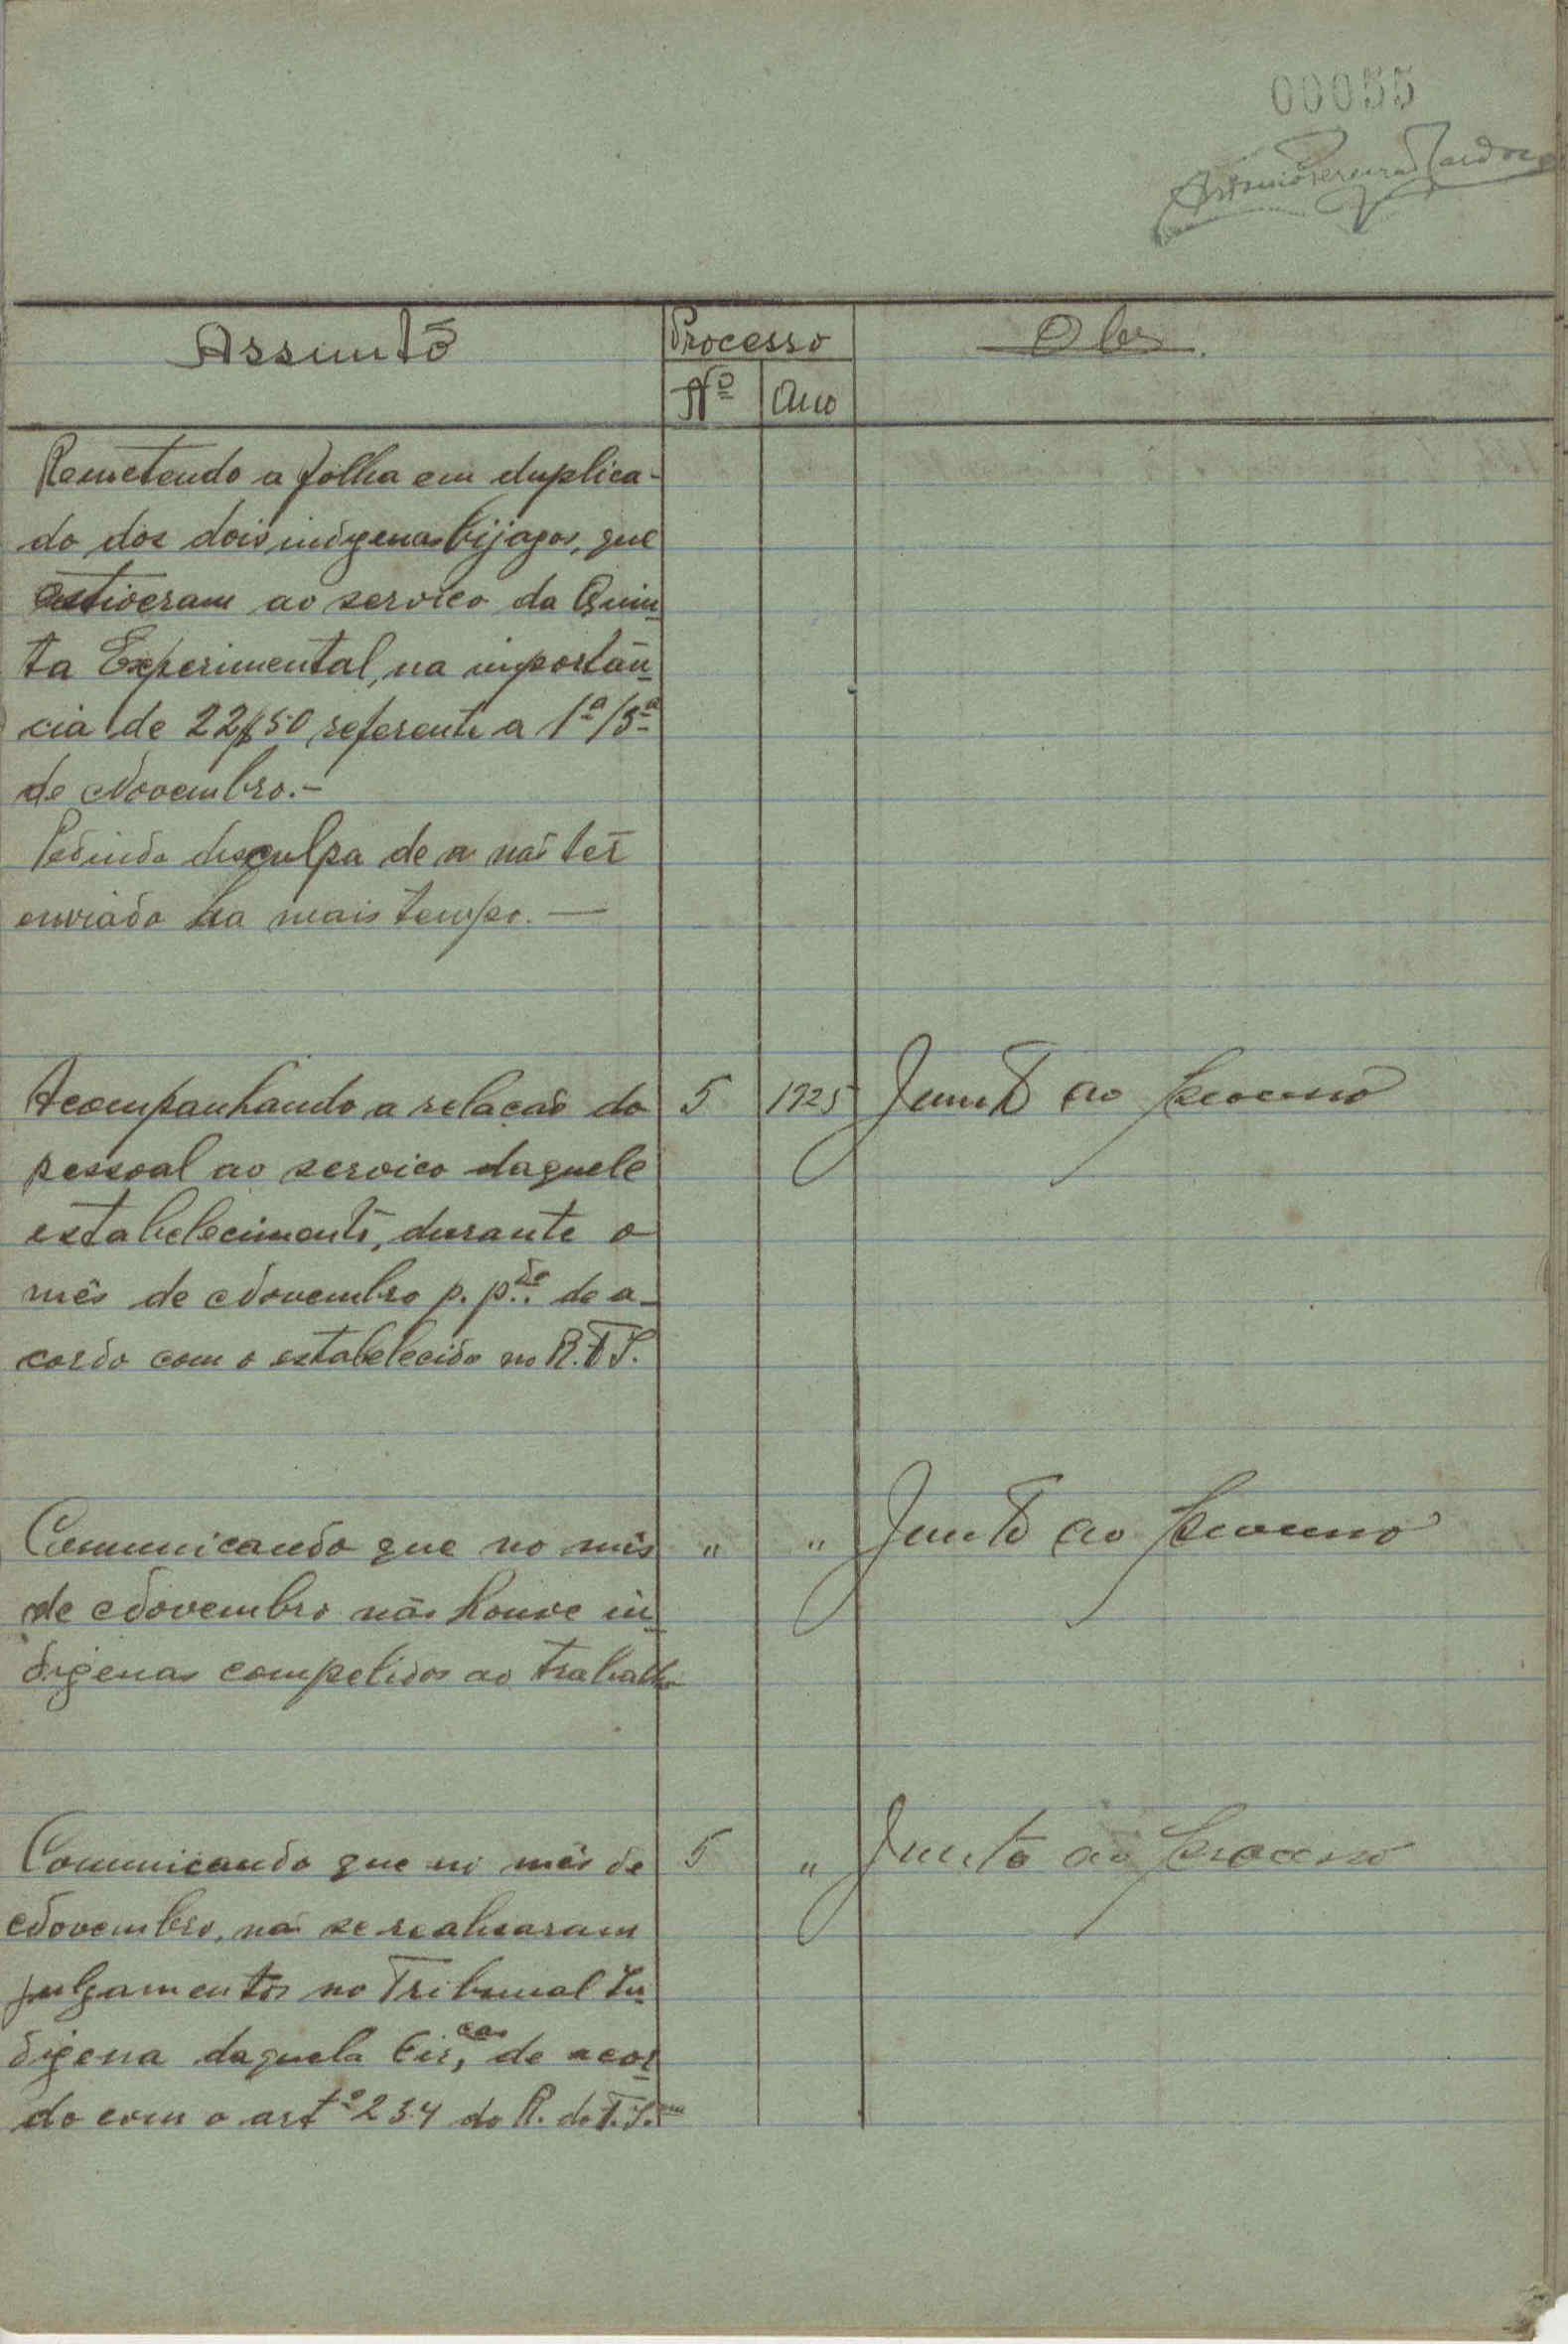 00055
Assunto
Processo
Obs.
Nº Ano
Remetendo a folha em duplica-
do dos dois indigenas bijagos, que
estiveram ao servico da Quin-
ta Experimental, na importân-
cia de 22$50 referente a 1ª/5ª
de Novembro.-
Pedindo desculpa de a não ter
enviado ha mais tempo. —
Acompanhando a relação do 5 1925 Junto ao processo
pessoal ao servico daquele
estabelecimento, durante o
mês de Novembro p. p.do de a-
cordo com o estabelecido no R.T.I.
Comunicando que no mês " " Junto ao processo
de Novembro não houve in-
digenas compelidos ao trabalho
Comunicando que no mês de 5 " Junto ao processo
Novembro, não se realisaram
julgamentos no Tribunal In-
digena daquela Cir,cao de acor-
do com o artº 234 do R. do T.I.